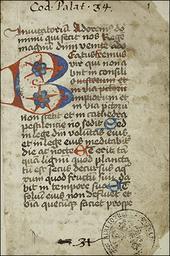 Cod. Palat. 34
1
Invitatoriũ Adorem9 do
minũ qui fecit nos
magnus dñs venite
Beatus vir
qui non a
bit in consili
o
impiorum et
in via pctorũ
non stetit et in cathedra
pestilencie nõ sedit Sed
in lege dni voluntas eius
et in lege eius meditabit
die ac nocte Et erit ta
qua lignũ quod planta
tũ est secus decursus aq
rum quod fructũ suũ da
bit in tempore suo Et
foliũ eius non defluet et
oĩa quecũqs faciet prospe
34